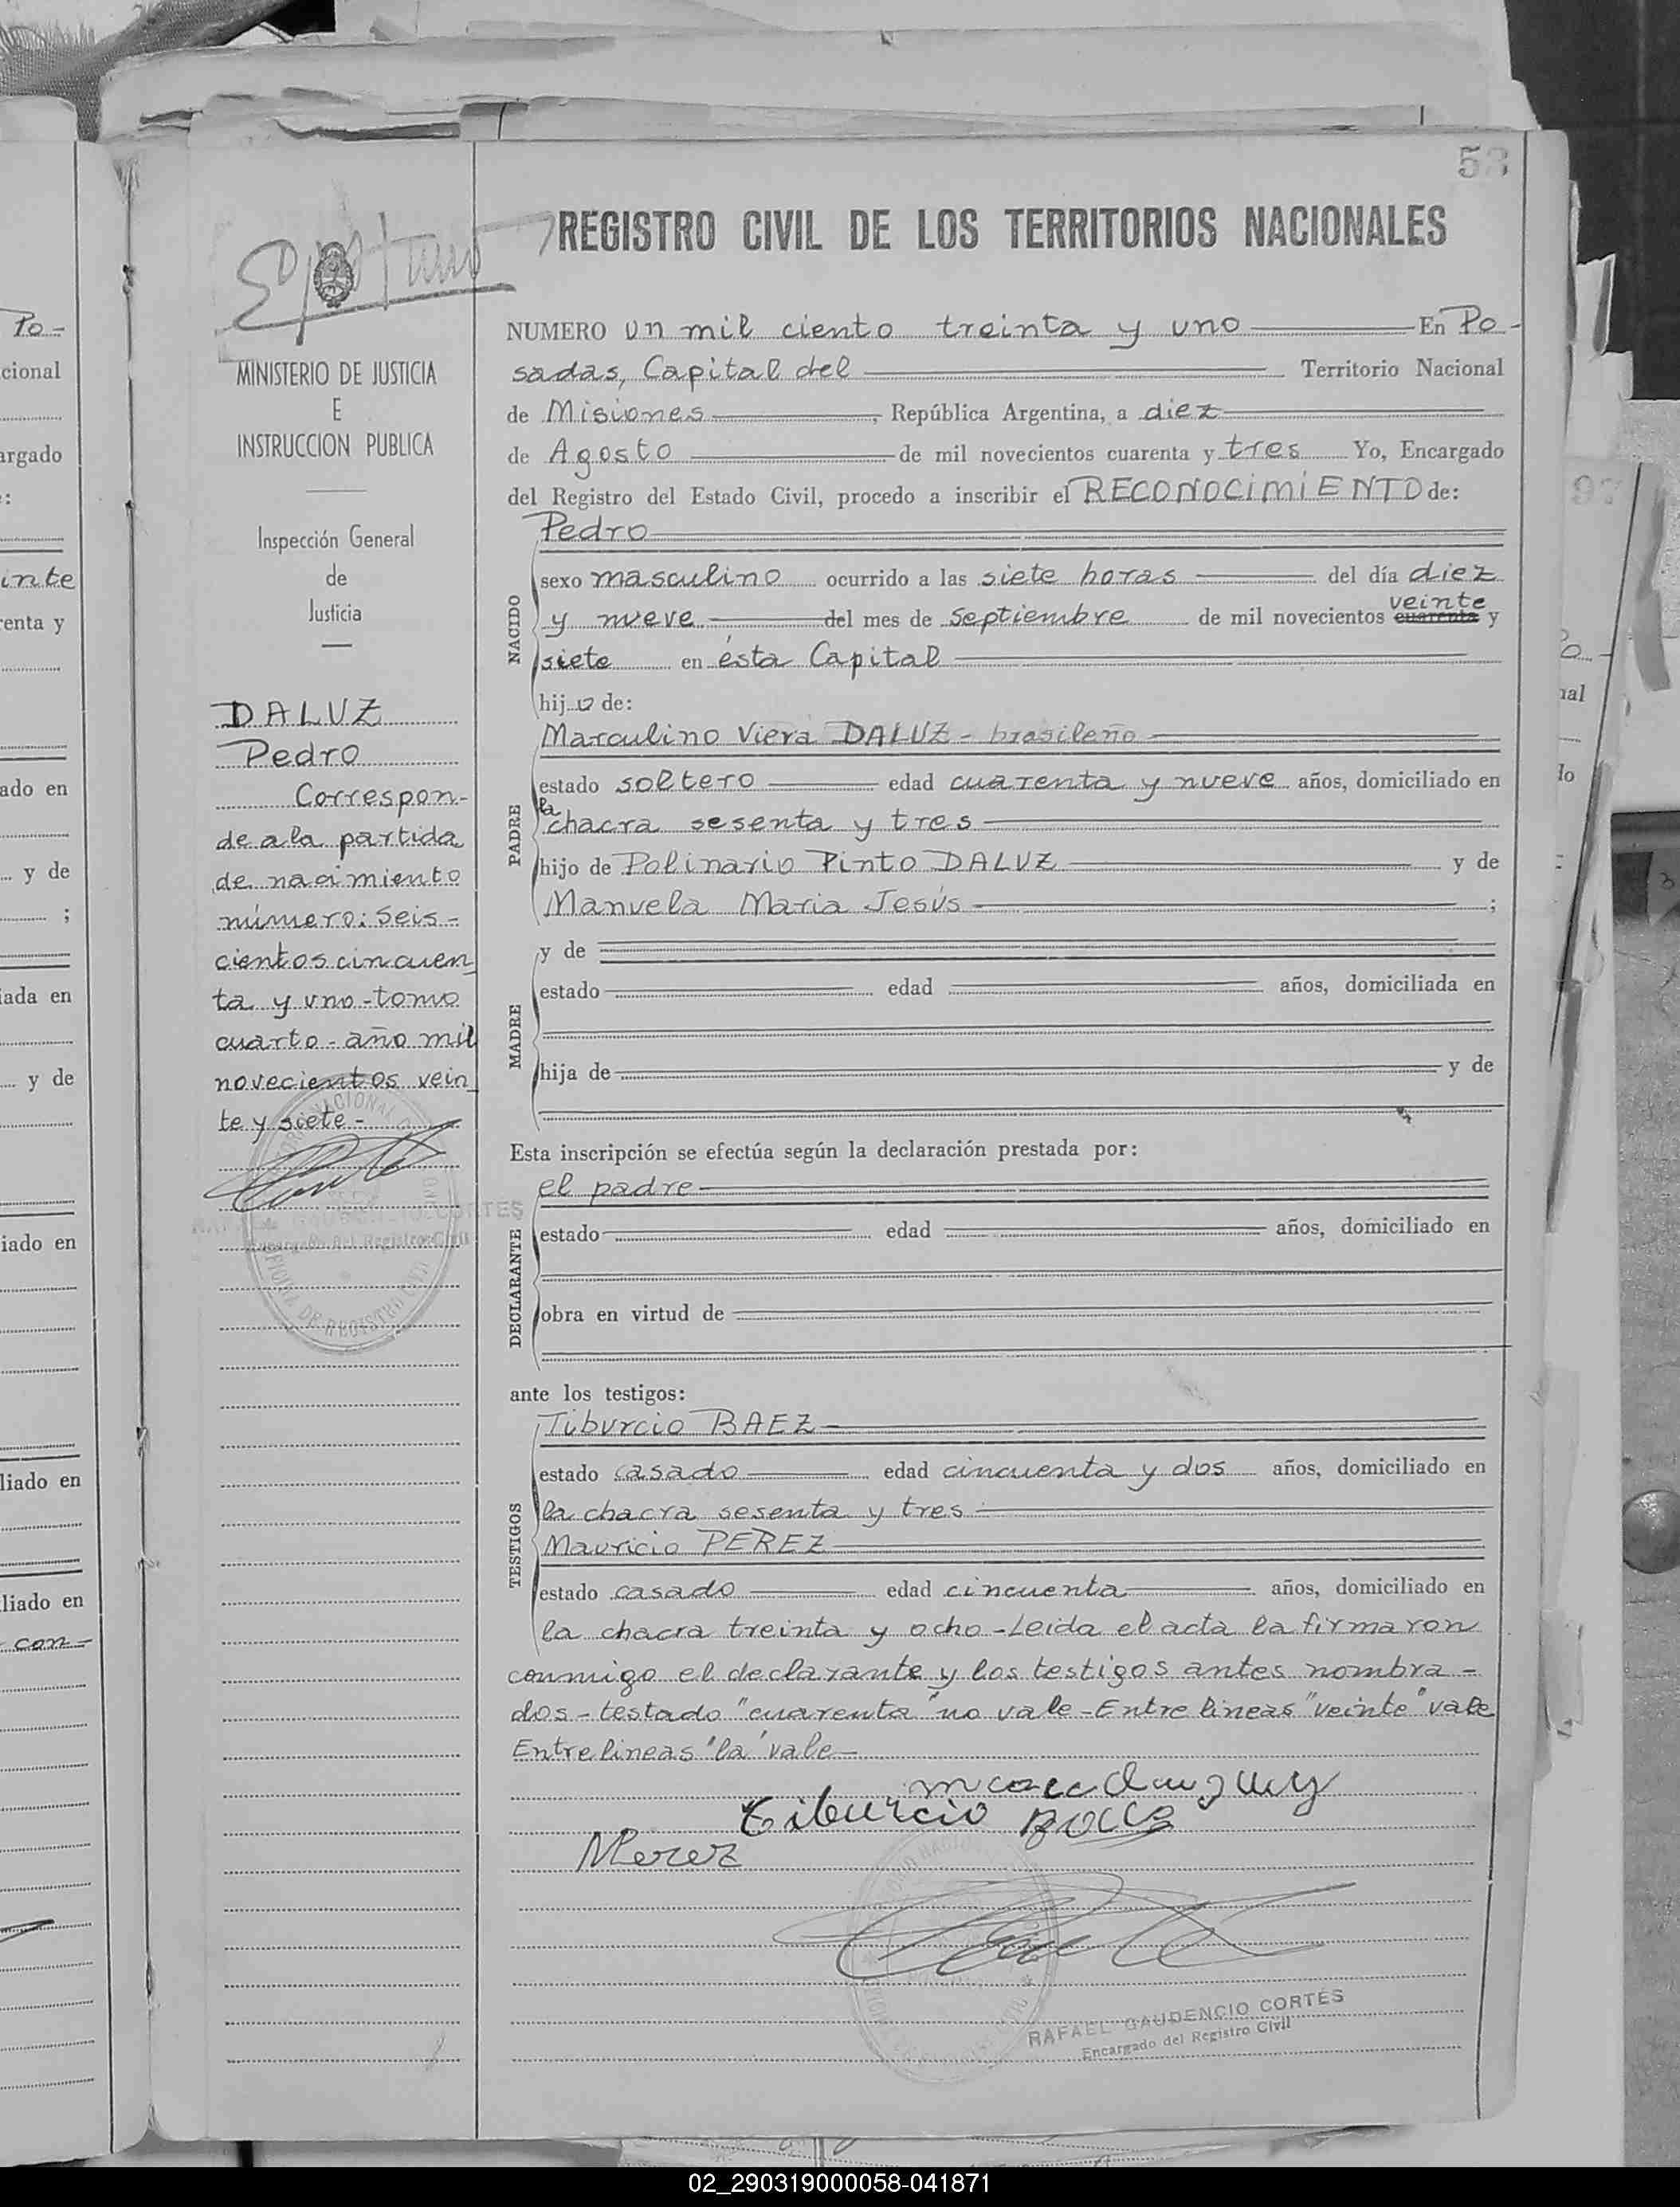 53
REGISTRO CIVIL DE LOS TERRITORIOS NACIONALES
MINISTERIO DE JUSTICIA
E
INSTRUCCION PUBLICA
Inspección General
de
Justicia
DALUZ
Pedro
Correspon-
de a la partida
de nacimiento
número: Seis-
cientos cincuen
ta y uno - tomo
cuarto - año mil
novecientos vein
te y siete -
GAUDENCIO CORTES
Encargado del Registro Civil
NUMERO un mil ciento treinta y uno En Po-
sadas, Capital del Territorio Nacional
de Misiones, República Argentina, a diez
de Agosto de mil novecientos cuarenta y tres Yo, Encargado
del Registro del Estado Civil, procedo a inscribir el RECONOCIMIENTO de:
NACIDO
Pedro
sexo masculino ocurrido a las siete horas del día diez
veinte
y nueve del mes de septiembre de mil novecientos cuarenta y
siete en ésta Capital
hijo de:
PADRE
Marculino Viera DALUZ - brasileño
estado soltero edad cuarenta y nueve años, domiciliado en
la
chacra sesenta y tres
hijo de Polinario Pinto DALUZ y de
Manuela Maria Jesús ;
MADRE
y de
estado edad años, domiciliada en
hija de y de
Esta inscripción se efectúa según la declaración prestada por:
DECLARANTE
el padre
estado edad años, domiciliado en
obra en virtud de
ante los testigos:
TESTIGOS
Tiburcio BAEZ
estado casado edad cincuenta y dos años, domiciliado en
la chacra sesenta y tres
Mauricio PEREZ
estado casado edad cincuenta años, domiciliado en
la chacra treinta y ocho - Leida el acta la firmaron
conmigo el declarante y los testigos antes nombra-
dos - testado "cuarenta" no vale - Entre lineas "veinte" vale
Entre lineas "la" vale -
Tiburcio
MPerez
RAFAEL GAUDENCIO CORTÉS
Encargado del Registro Civil
Po-
cional
argado
inte
enta y
ado en
y de
;
iada en
y de
iado en
liado en
liado en
con-
02_290319000058-041871